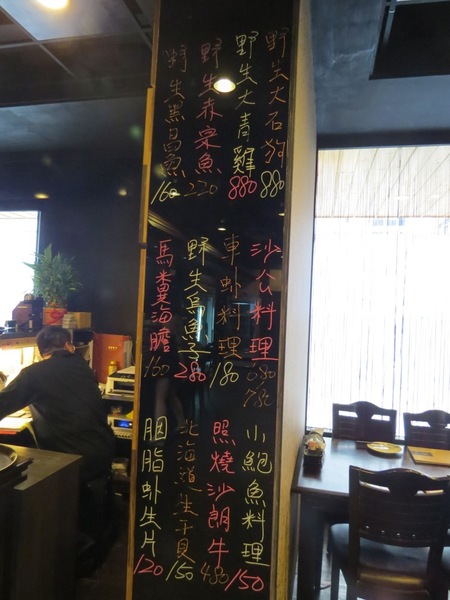 野生大石狗880
野生大青雞880
野生赤宗魚220
野生黑昌魚160
沙公料理680 780
車虾料理180
野生烏魚子280
馬糞海膽160
小鮑魚料理150
照燒沙朗牛480
北海道生干貝150
胭脂虾生片120